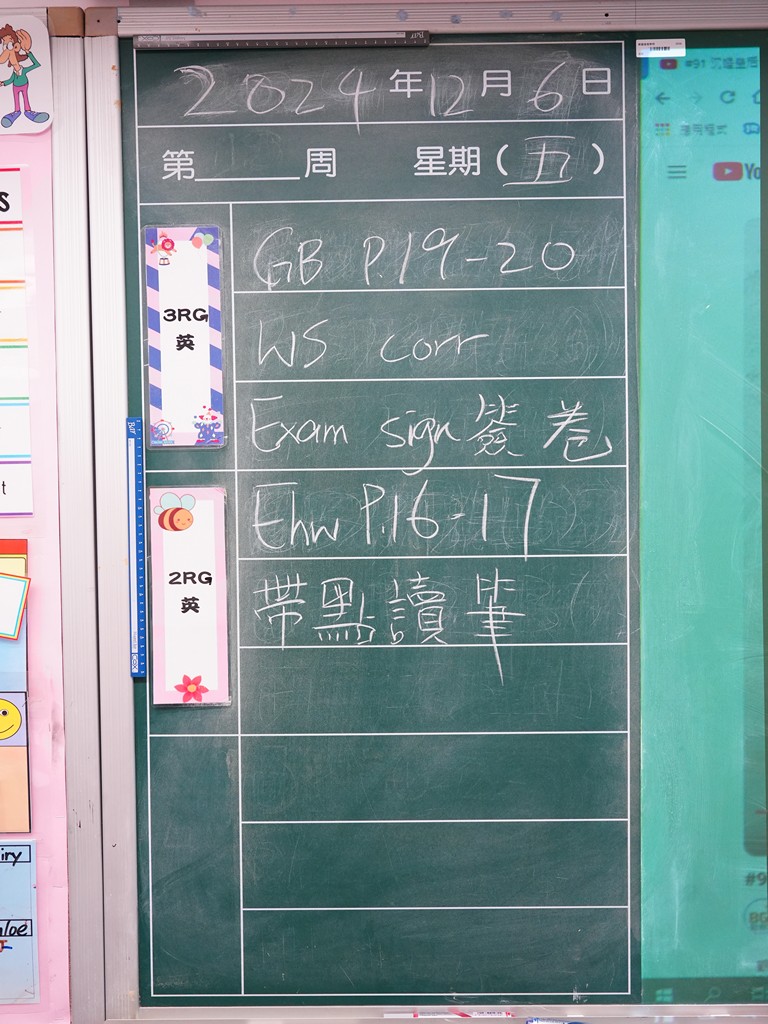 2024年12月6日
第____周 星期(五)
3RG
英
GB P.19-20
WS corr
Exam sign 簽卷
2RG
英
Ehw P.16-17
帶點讀筆
#91
iry
loe
#9